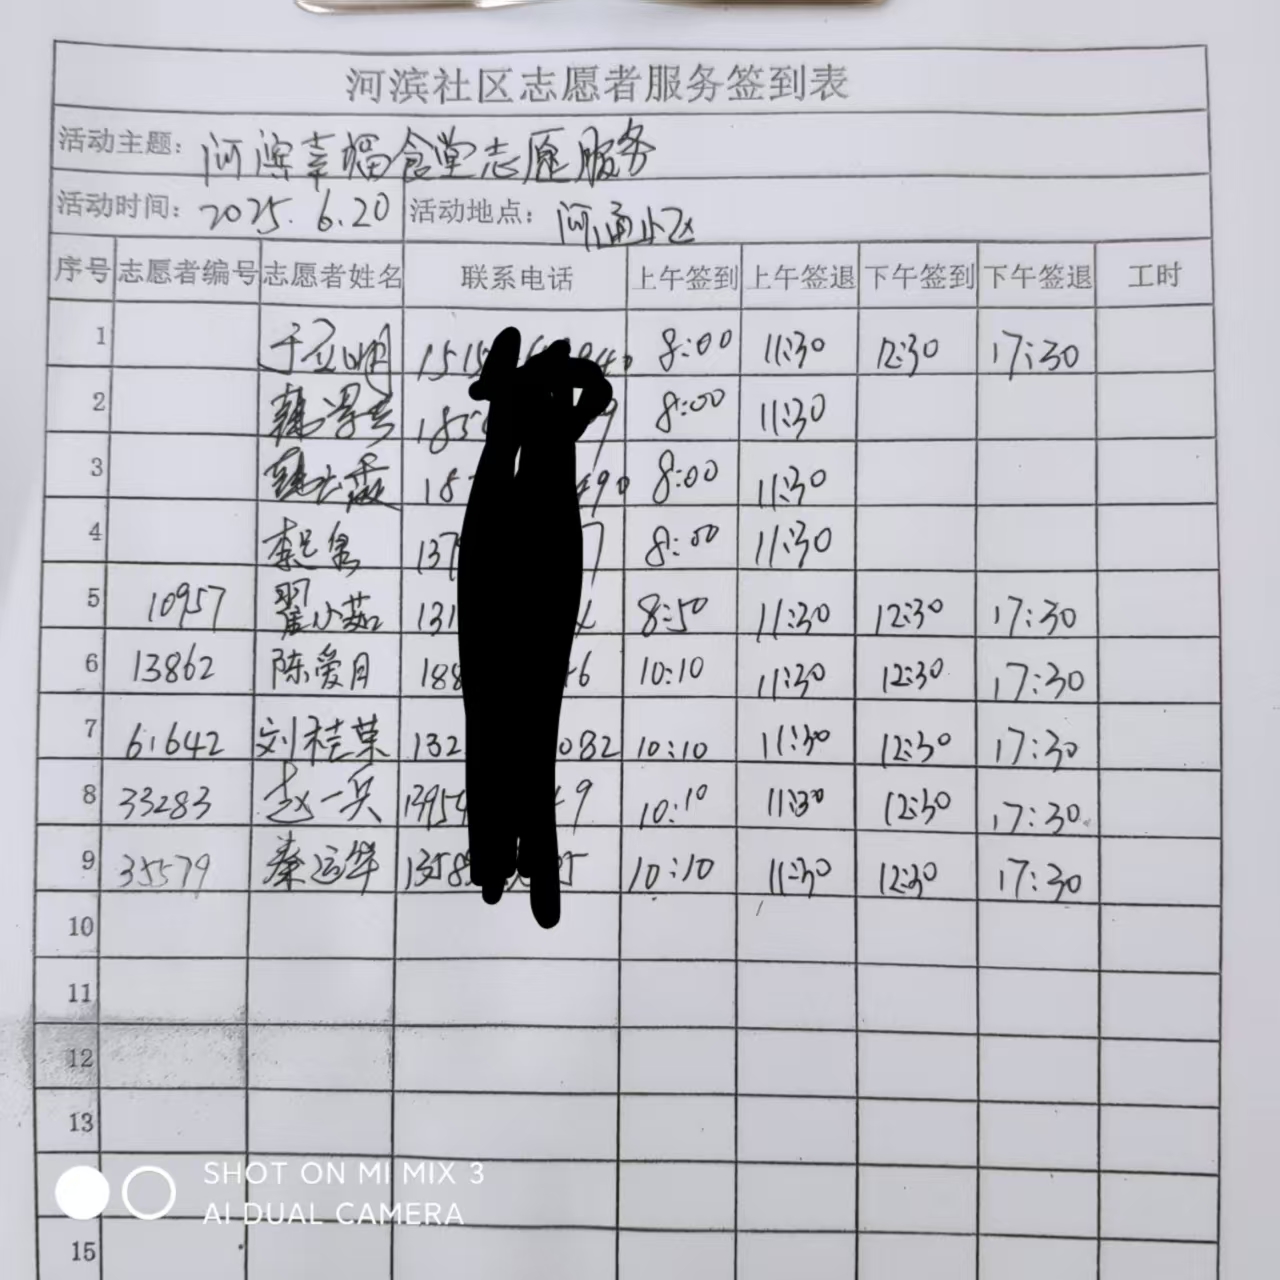 河滨社区志愿者服务签到表
活动主题: 河滨幸福食堂志愿服务
活动时间: 2025.6.20 活动地点: 河通小区
序号 志愿者编号 志愿者姓名 联系电话 上午签到 上午签退 下午签到 下午签退 工时
1 于立明 1515 8:00 11:30 12:30 17:30
2 185 9 8:00 11:30
3 18 90 8:00 11:30
4 137 7 8:00 11:30
5 10957 翟小茹 131 8:50 11:30 12:30 17:30
6 13862 陈爱月 188 6 10:10 11:30 12:30 17:30
7 61642 刘桂菜 132 082 10:10 11:30 12:30 17:30
8 33283 赵一兵 1395 9 10:10 11:30 12:30 17:30
9 35579 秦运华 1358 5 10:10 11:30 12:30 17:30
10
11
12
13
15
SHOT ON MI MIX 3
AI DUAL CAMERA